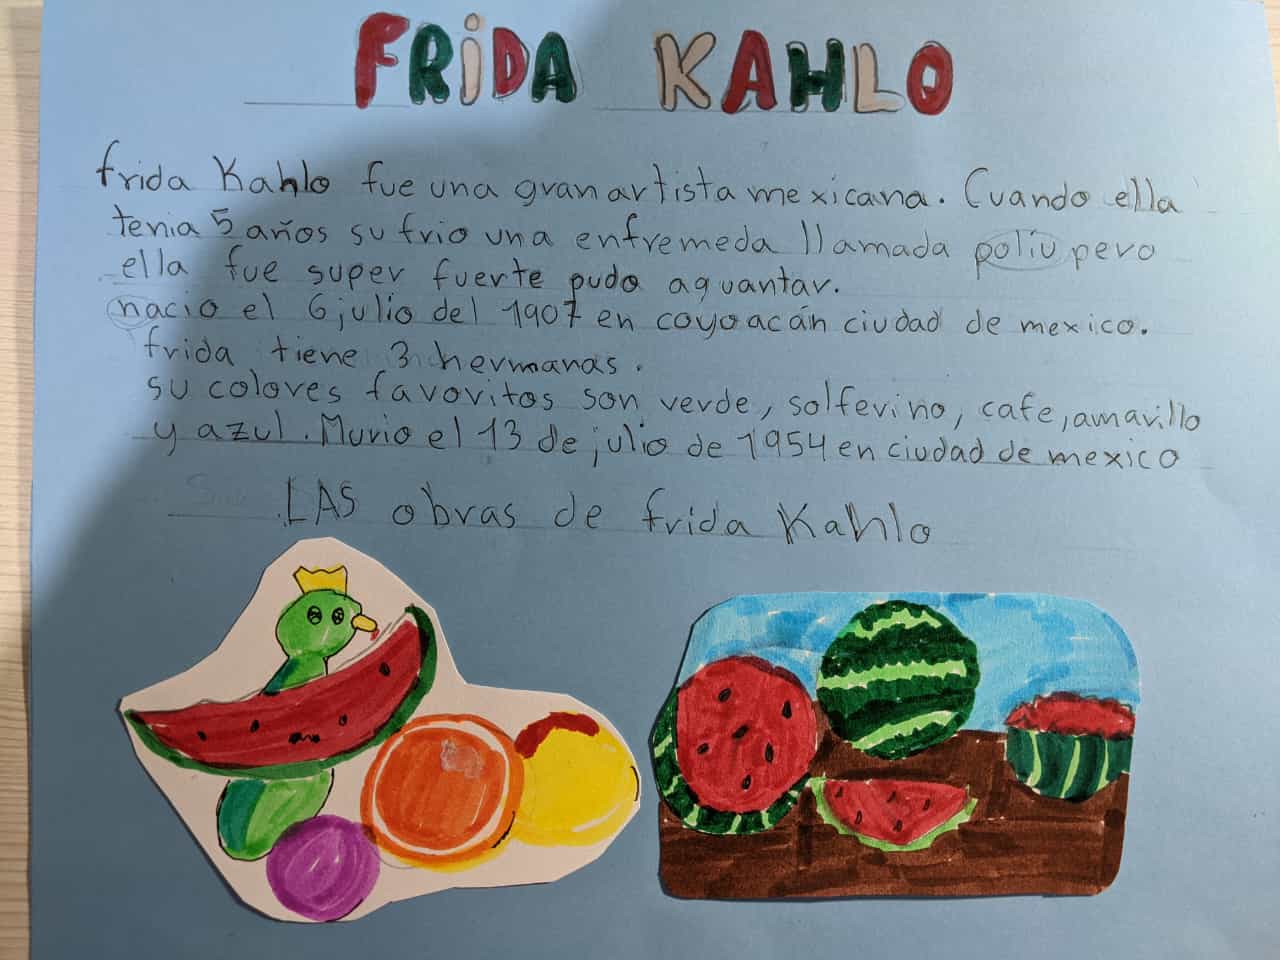 FRiDA KAHLO
frida Kahlo fue una gran artista mexicana. Cuando ella
tenia 5 años sufrio una enfremeda llamada poliu pero
ella fue super fuerte pudo aguantar.
nacio el 6 julio del 1907 en coyoacán ciudad de mexico.
frida tiene 3 hermanas.
su colores favoritos son verde, solferino, cafe, amarillo
y azul. Murio el 13 de julio de 1954 en ciudad de mexico
LAS obras de frida Kahlo